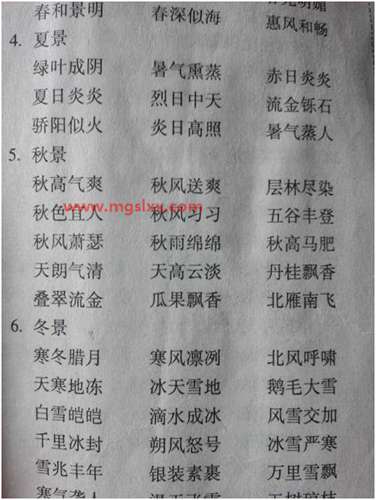 春和景明 春深似海 惠风和畅
4. 夏景
绿叶成阴 暑气熏蒸 赤日炎炎
夏日炎炎 烈日中天 流金铄石
骄阳似火 炎日高照 暑气蒸人
5. 秋景
秋高气爽 秋风送爽 层林尽染
www.mgslxy.com
秋色宜人 秋风习习 五谷丰登
秋风萧瑟 秋雨绵绵 秋高马肥
天朗气清 天高云淡 丹桂飘香
叠翠流金 瓜果飘香 北雁南飞
6. 冬景
寒冬腊月 寒风凛冽 北风呼啸
天寒地冻 冰天雪地 鹅毛大雪
白雪皑皑 滴水成冰 风雪交加
千里冰封 朔风怒号 冰雪严寒
雪兆丰年 银装素裹 万里雪飘
寒气袭人